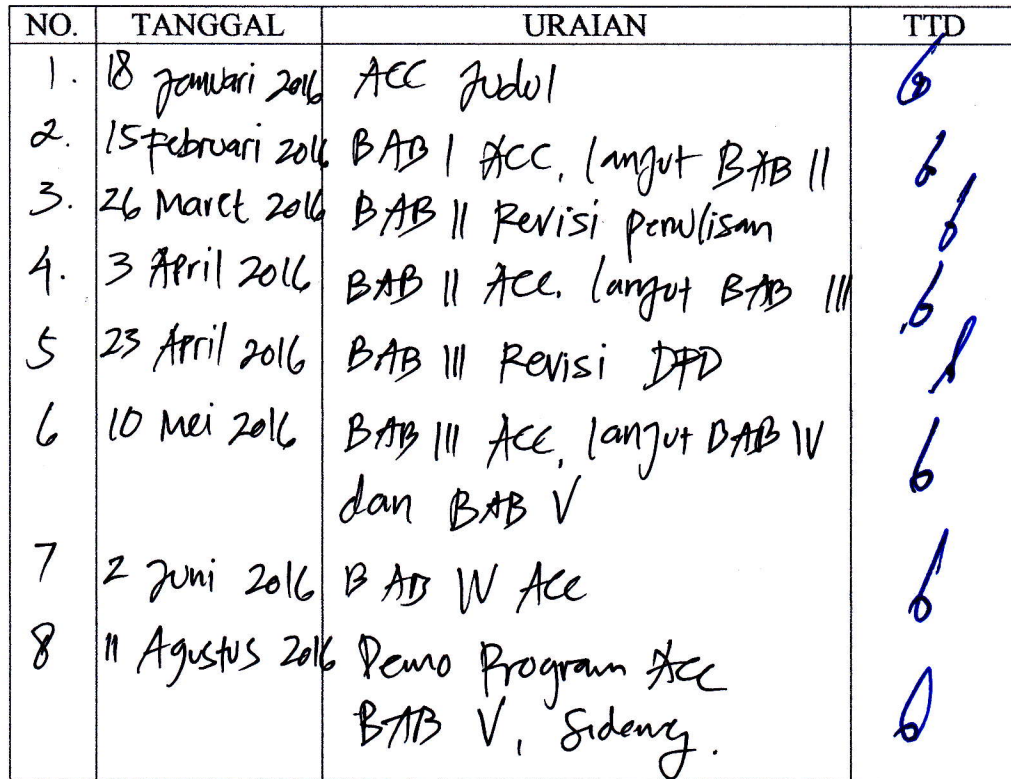 NO. TANGGAL URAIAN TTD
1. 18 Januari 2016 ACC Judul
2. 15 Februari 2016 BAB I ACC, lanjut BAB II
3. 26 Maret 2016 BAB II Revisi penulisan
4. 3 April 2016 BAB II ACC. lanjut BAB III
5 23 April 2016 BAB III Revisi DFD
6 10 Mei 2016 BAB III ACC, lanjut BAB IV
dan BAB V
7 2 Juni 2016 BAB IV Acc
8 11 Agustus 2016 Demo Program Acc
BAB V, Sidang.